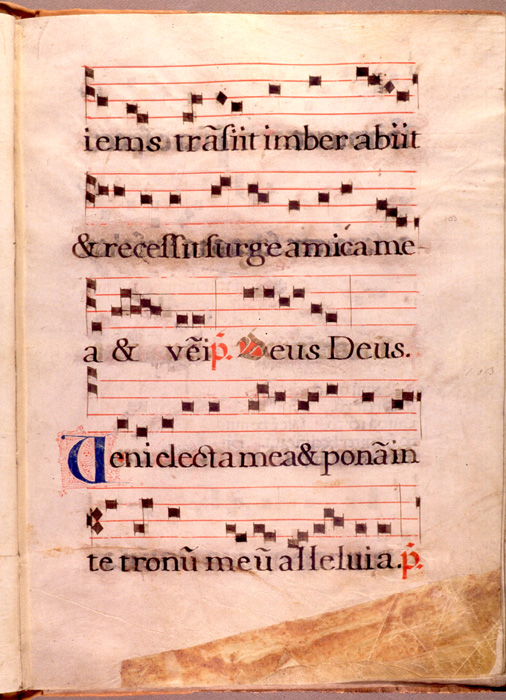 iems trãſiit imber abiit
& receſſit ſurge amica me
a & vẽi p̃. Deus Deus.
Veni electa mea & ponã in
te tronũ meũ alleluia. p̃.